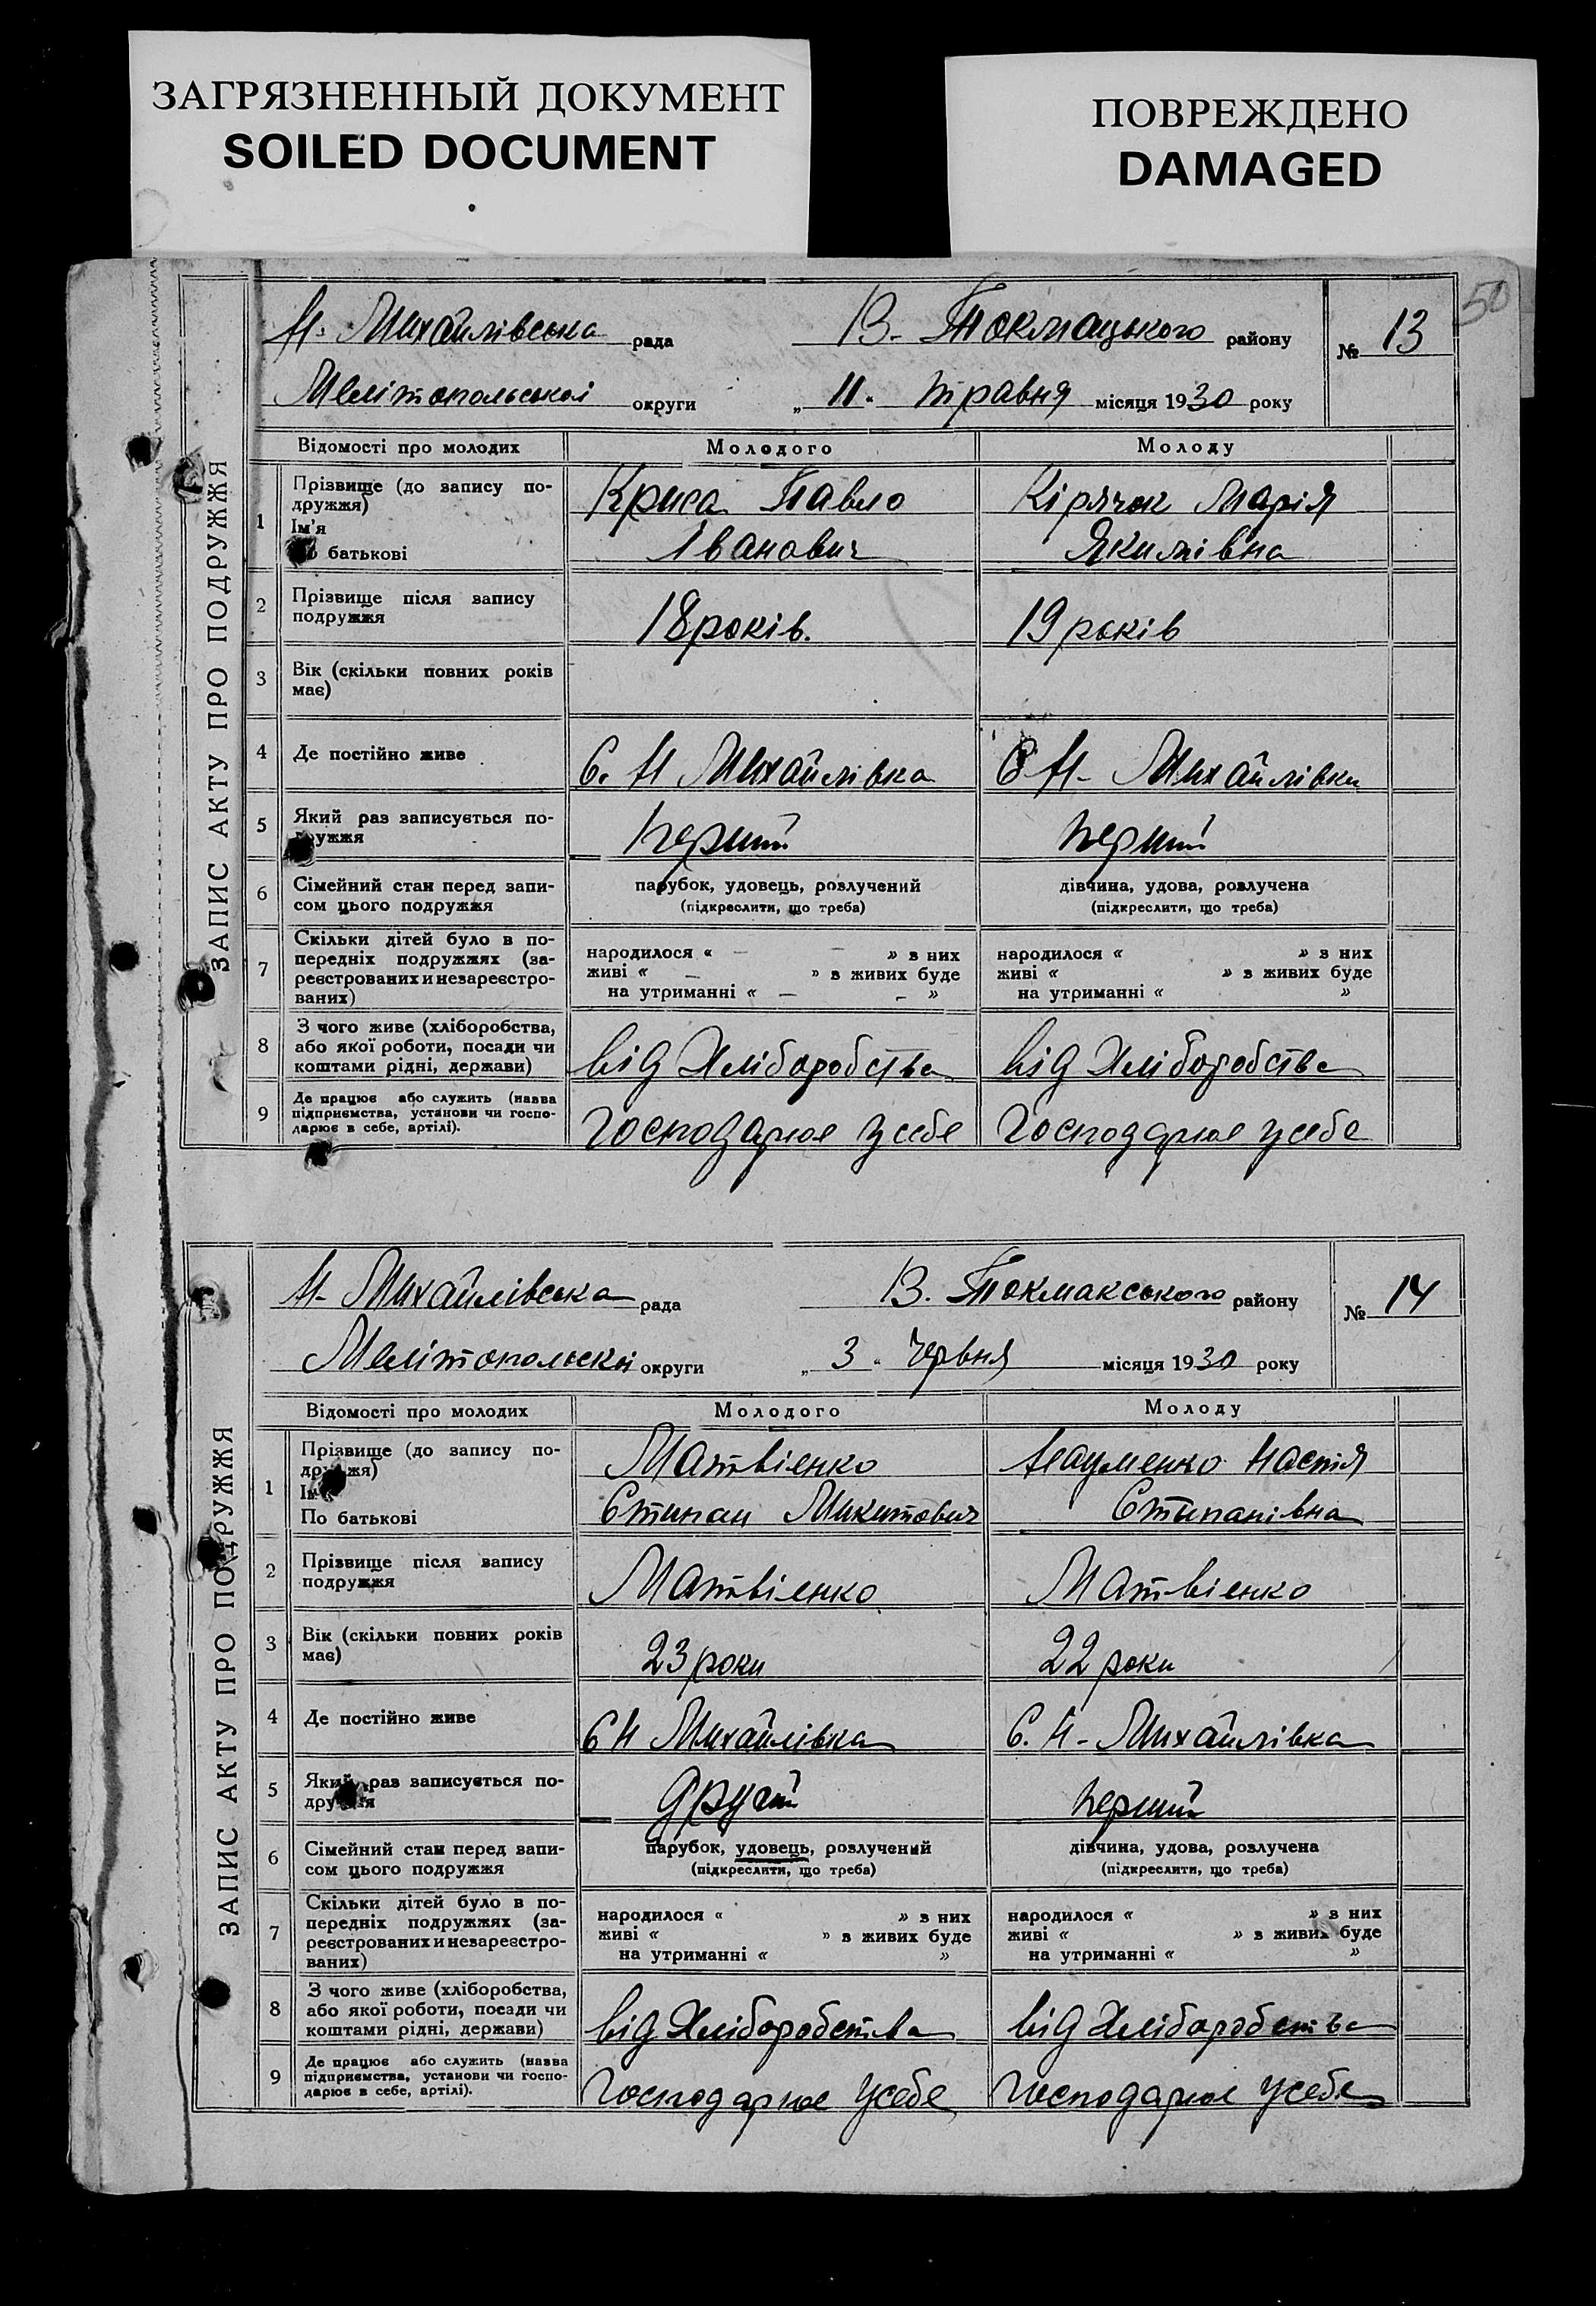 ЗАГРЯЗНЕННЫЙ ДОКУМЕНТ
SOILED DOCUMENT
ПОВРЕЖДЕНО
DAMAGED
50
ЗАПИС АКТУ ПРО ПОДРУЖЖЯ
Н. Михайлівська рада В. Токмацького району № 13
Мелітопольської округи „ 11 " травня місяця 1930 року
Відомості про молодих Молодого Молоду
1 Прізвище (до запису по-
дружжя)
Ім'я
По батькові
Криса Павло
Іванович
Кірячок Марія
Якимівна
2 Прізвище після запису
подружжя
18 років. 19 років
3 Вік (скільки повних років
має)
4 Де постійно живе С. Н Михайлівка С Н- Михайлівки
5 Який раз записується по-
дружжя
перший перший
6 Сімейний стан перед запи-
сом цього подружжя
парубок, удовець, розлучений
(підкреслити, що треба)
дівчина, удова, розлучена
(підкреслити, що треба)
7 Скільки дітей було в по-
передніх подружжях (за-
реєстрованих и незареєстро-
ваних)
народилося « — — » з них
живі « — » в живих буде
на утриманні « — — »
народилося « » з них
живі « » в живих буде
на утриманні « »
8 З чого живе (хліборобства,
або якої роботи, посади чи
коштами рідні, держави)
від Хліборобства від Хліборобства
9 Де працює або служить (назва
підприємства, установи чи госпо-
дарює в себе, артілі).
Господарює усебе Господарює усебе
ЗАПИС АКТУ ПРО ПОДРУЖЖЯ
Н- Михайлівська рада В. Токмакського району № 14
Мелітопольскої округи „ 3 " Червня місяця 1930 року
Відомості про молодих Молодого Молоду
1 Прізвище (до запису по-
дружжя)
Ім'я
По батькові
Матвієнко
Стипан Микитович
Науменко Настія
Стипанівна
2 Прізвище після запису
подружжя
Матвієнко Матвієнко
3 Вік (скільки повних років
має)
23 роки 22 роки
4 Де постійно живе С Н Михайлівка С. Н- Михайлівка
5 Який раз записується по-
дружжя
другий перший
6 Сімейний стан перед запи-
сом цього подружжя
парубок, удовець, розлучений
(підкреслити, що треба)
дівчина, удова, розлучена
(підкреслити, що треба)
7 Скільки дітей було в по-
передніх подружжях (за-
реєстрованих и незареєстро-
ваних)
народилося « » з них
живі « » в живих буде
на утриманні « »
народилося « » з них
живі « » в живих буде
на утриманні « »
8 З чого живе (хліборобства,
або якої роботи, посади чи
коштами рідні, держави)
від Хліборобства від Хліборобства
9 Де працює або служить (назва
підприємства, установи чи госпо-
дарює в себе, артілі).
Господарює усебе Господарює усебе